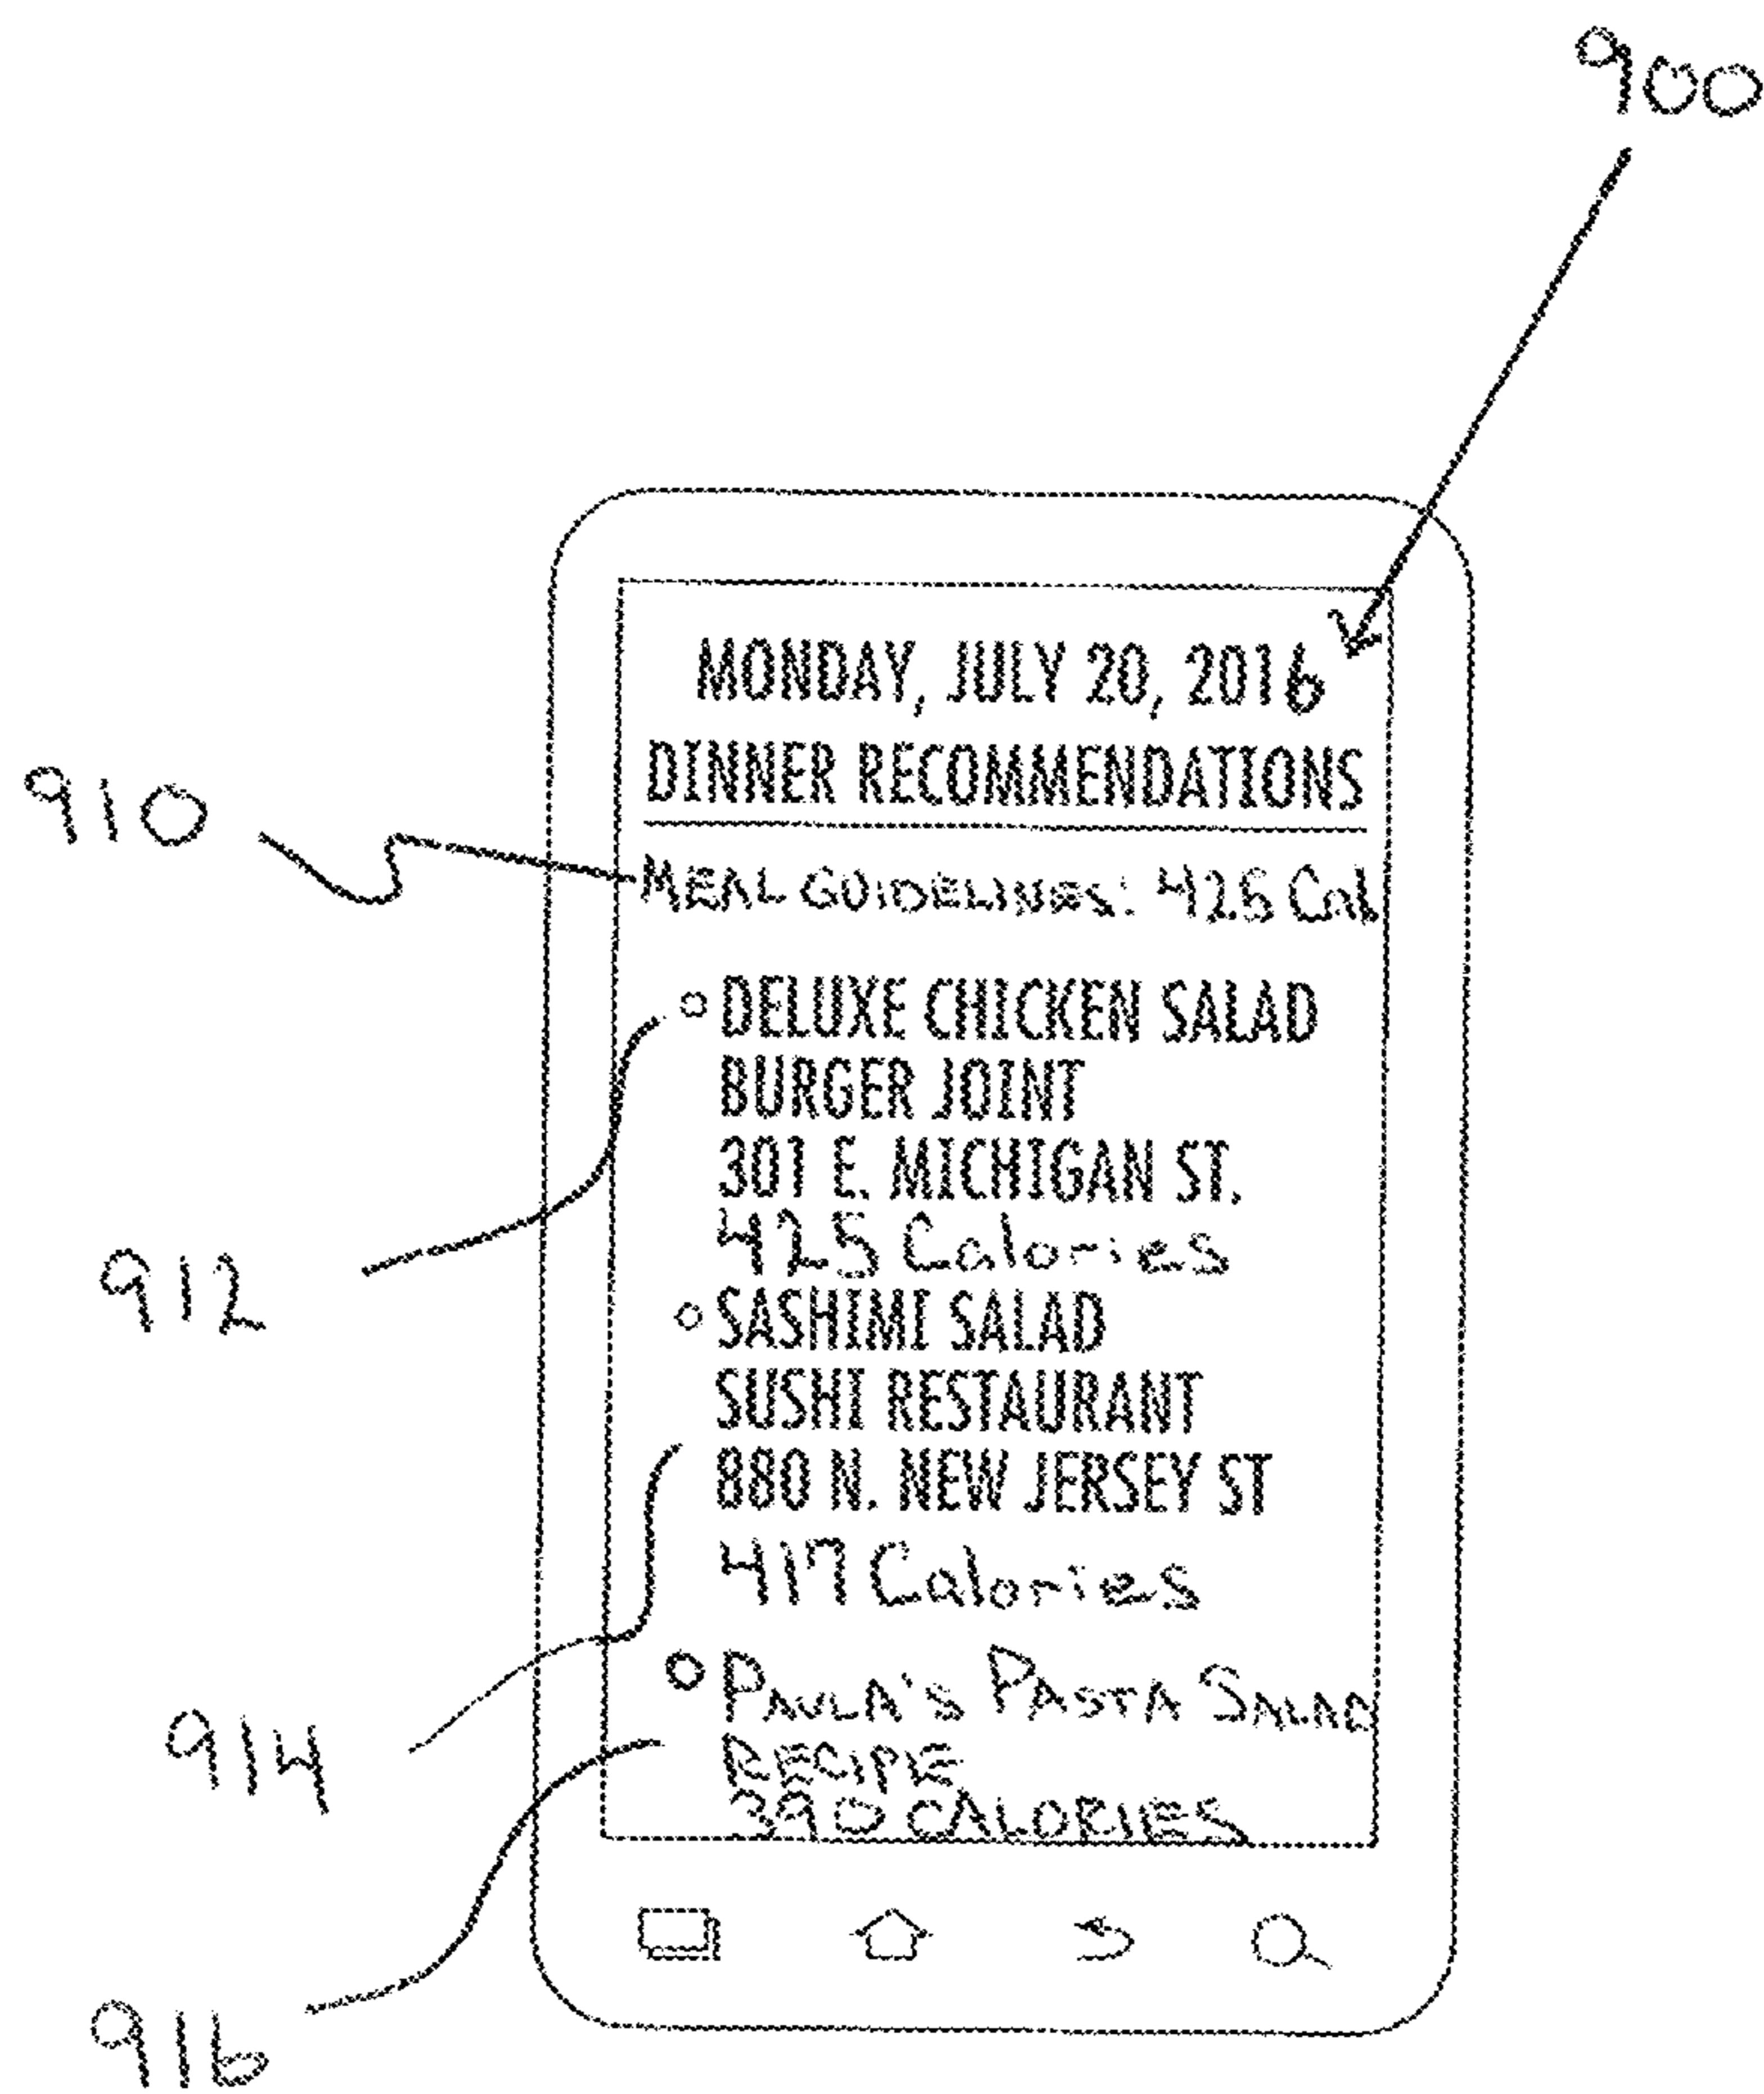 900
MONDAY, JULY 20, 2016
DINNER RECOMMENDATIONS
910
MEAL GUIDELINES: 425 Cal
DELUXE CHICKEN SALAD
BURGER JOINT
301 E. MICHIGAN ST.
425 Calories
912
SASHIMI SALAD
SUSHI RESTAURANT
880 N. NEW JERSEY ST
417 Calories
914
PAULA'S PASTA SALAD
RECIPE
390 CALORIES
916